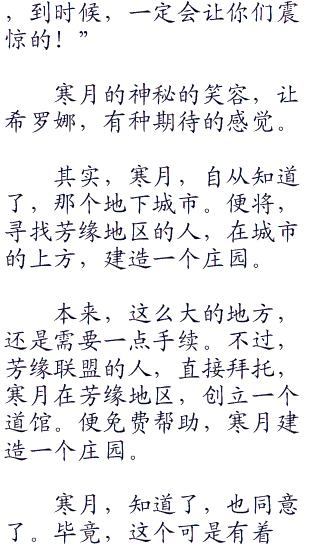 ，到时候，一定会让你们震
惊的！”
寒月的神秘的笑容，让
希罗娜，有种期待的感觉。
其实，寒月，自从知道
了，那个地下城市。便将，
寻找芳缘地区的人，在城市
的上方，建造一个庄园。
本来，这么大的地方，
还是需要一点手续。不过，
芳缘联盟的人，直接拜托，
寒月在芳缘地区，创立一个
道馆。便免费帮助，寒月建
造一个庄园。
寒月，知道了，也同意
了。毕竟，这个可是有着